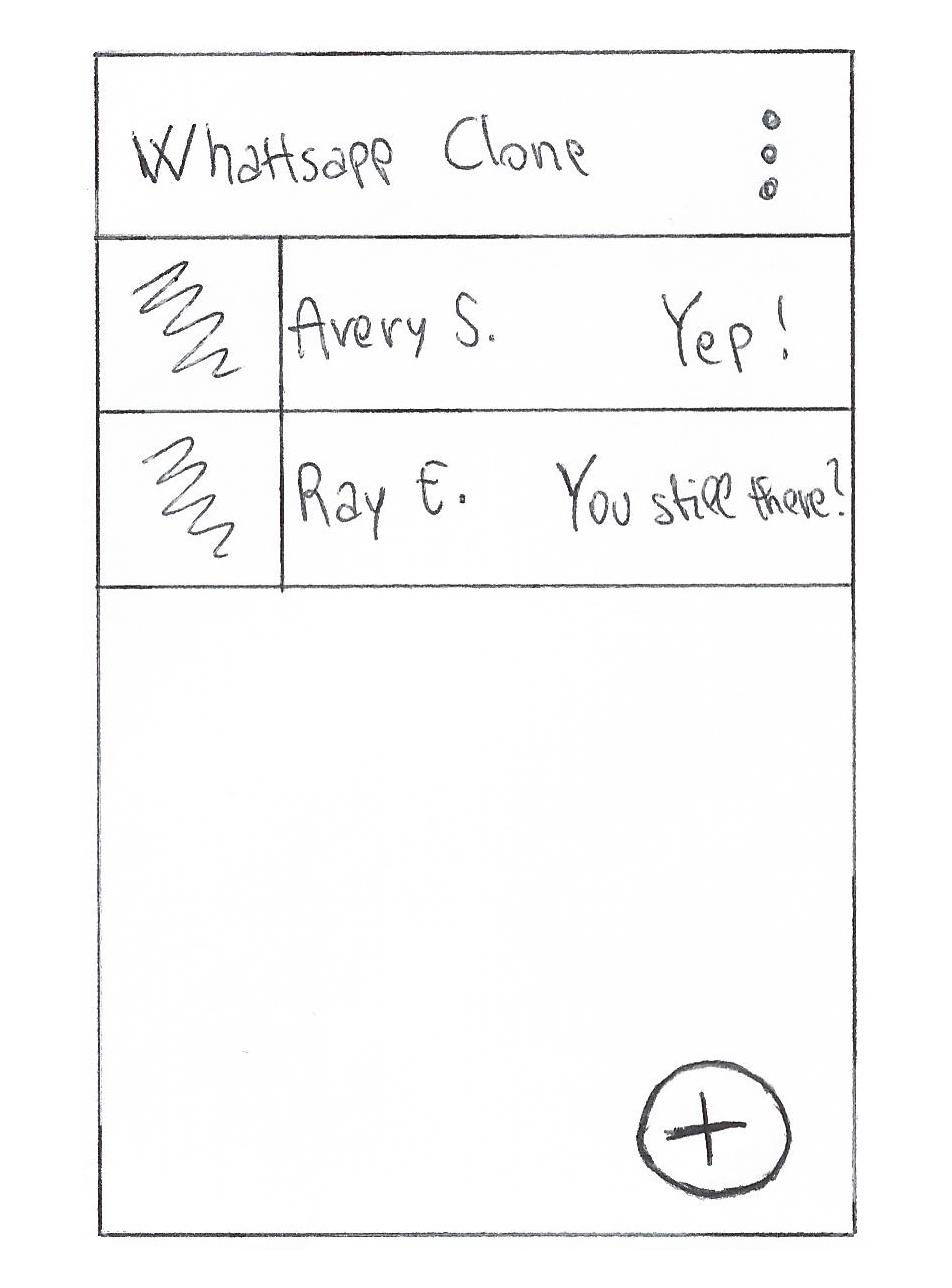 Whattsapp Clone
Avery S. Yep!
Ray E. You still there?